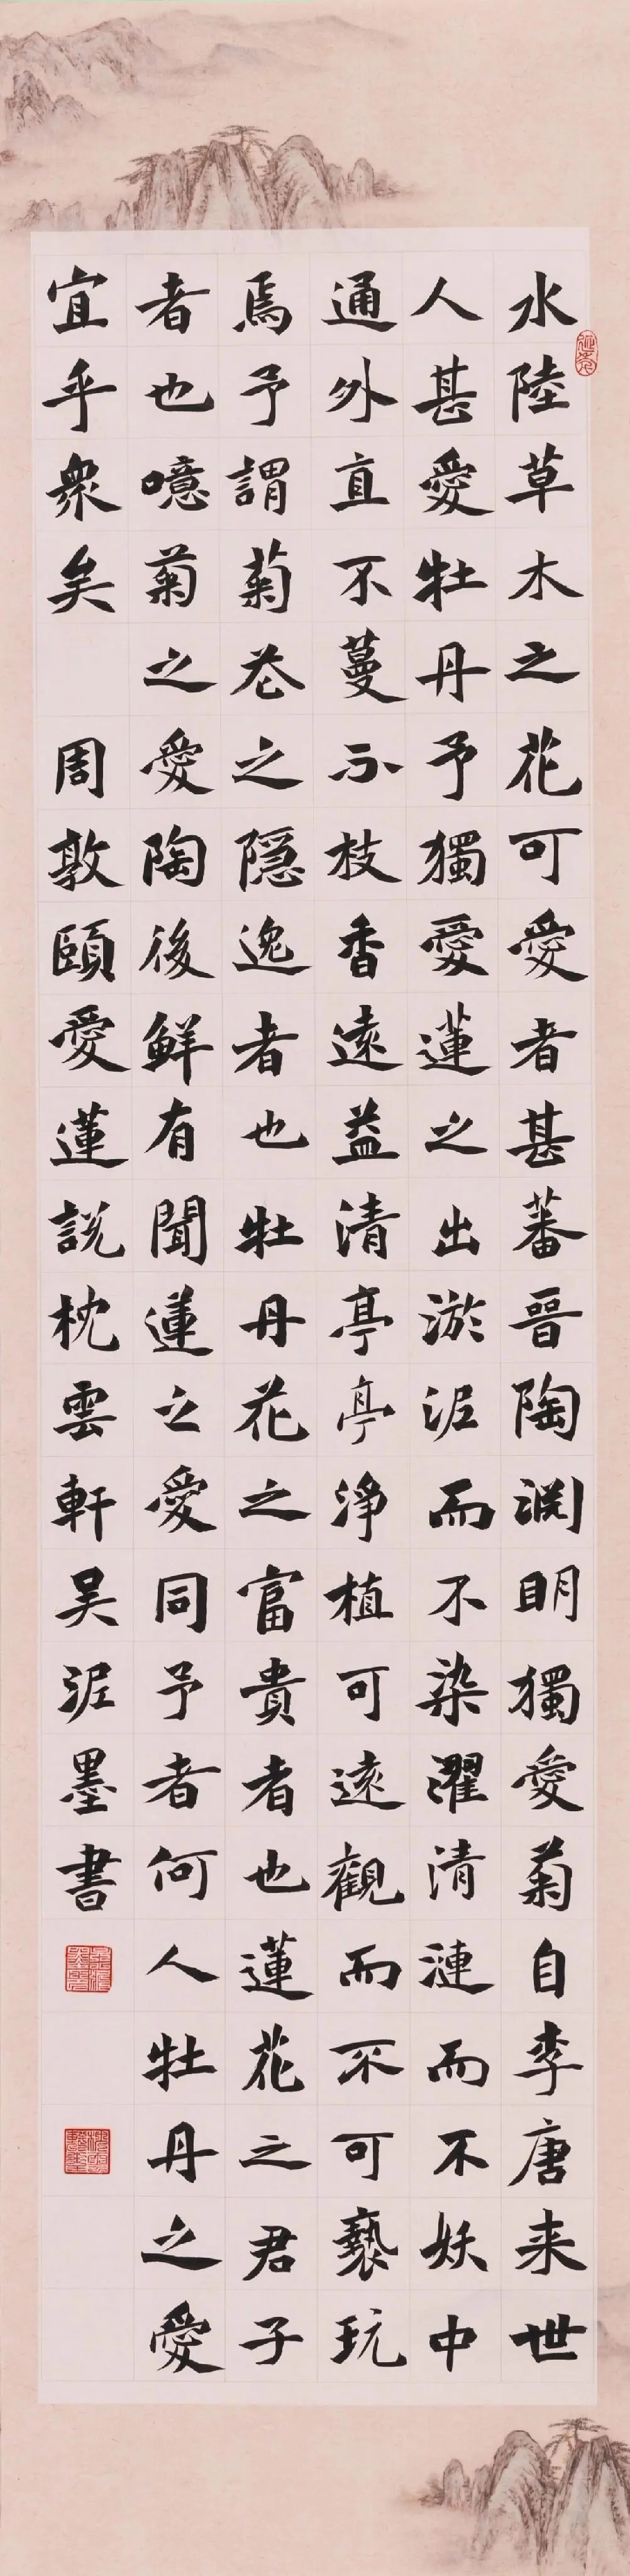 水陸草木之花可愛者甚蕃晉陶渊明獨愛菊自李唐来世
人甚愛牡丹予獨愛蓮之出淤泥而不染濯清漣而不妖中
通外直不蔓不枝香遠益清亭亭淨植可遠觀而不可褻玩
焉予謂菊花之隱逸者也牡丹花之富貴者也蓮花之君子
者也噫菊之愛陶後鮮有聞蓮之愛同予者何人牡丹之愛
宜乎衆矣 周敦頤愛蓮説枕雲軒吴泥墨書